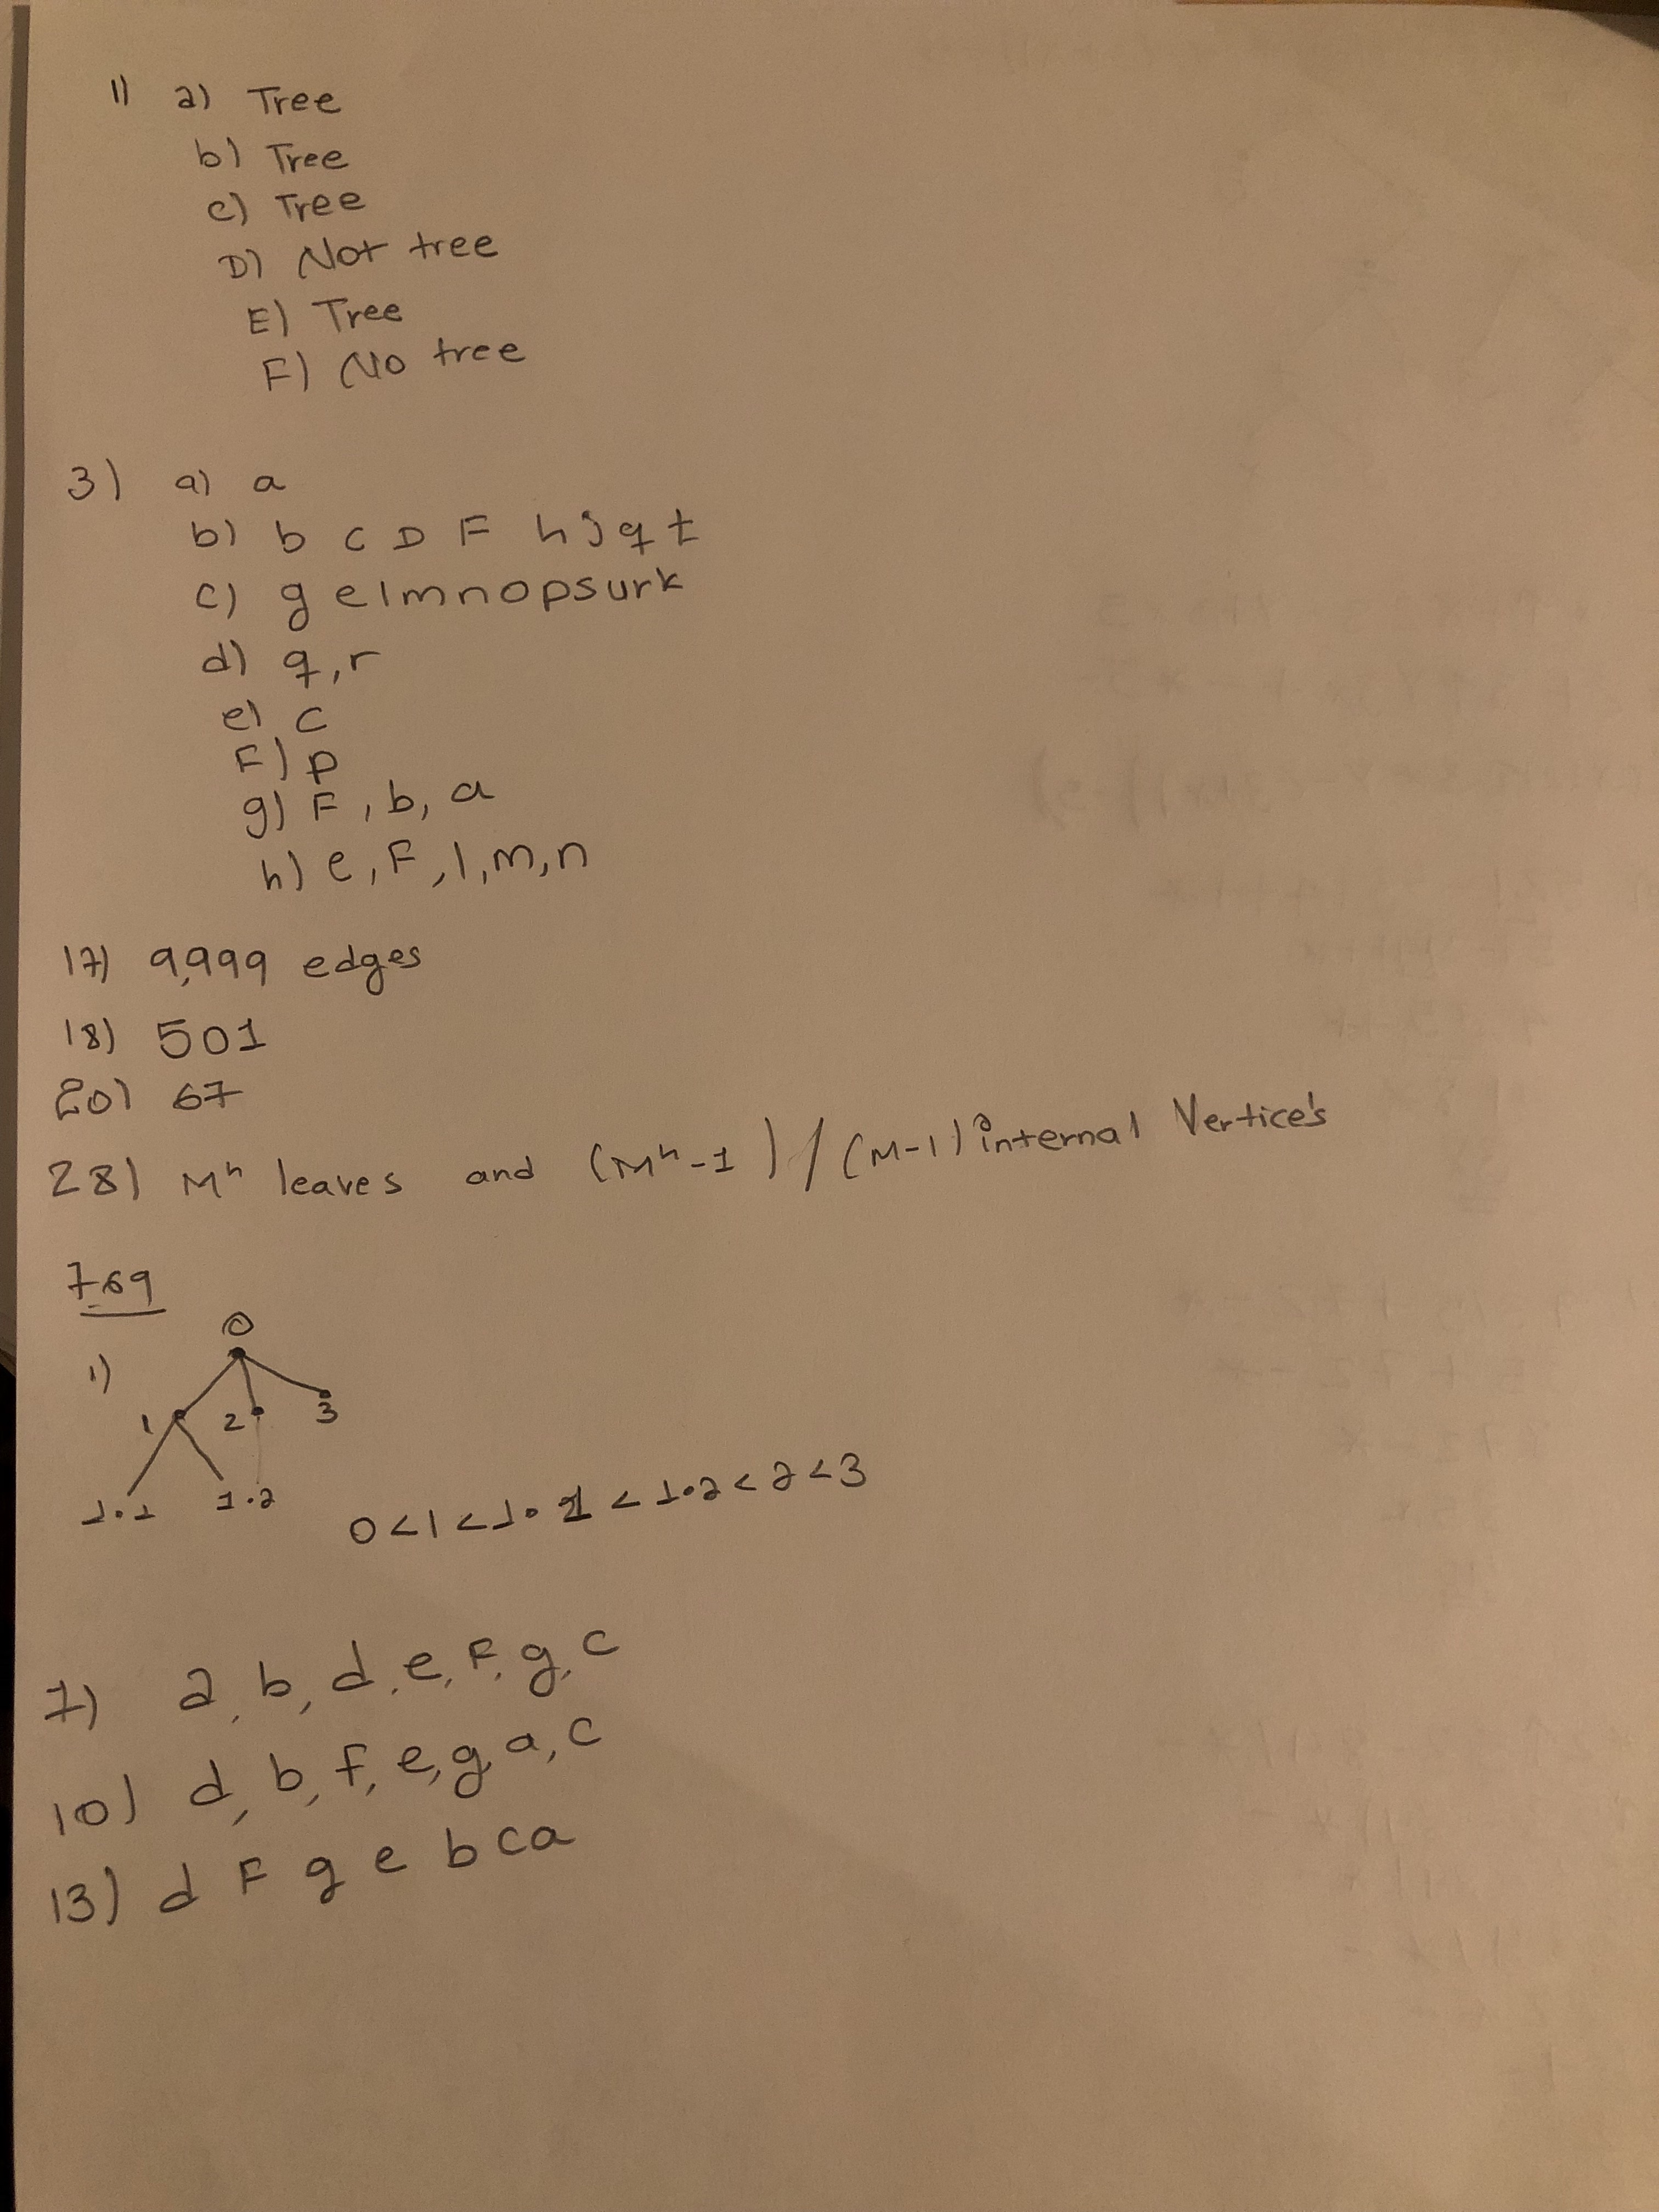 1) a) Tree
b) Tree
c) Tree
D) Not tree
E) Tree
F) No tree
3) a) a
b) b c D F h j q t
c) g e l m n o p s u r k
d) q, r
e) c
F) p
g) F, b, a
h) e, F, l, m, n
17) 9,999 edges
18) 501
20) 67
28) Mʰ leaves and (Mʰ-1)/(M-1) internal Vertice's
769
1)
0
1 2 3
1.1 1.2
0<1<1.1<1.2<2<3
7) a, b, d, e, F, g, c
10) d, b, f, e, g, a, c
13) d F g e b c a